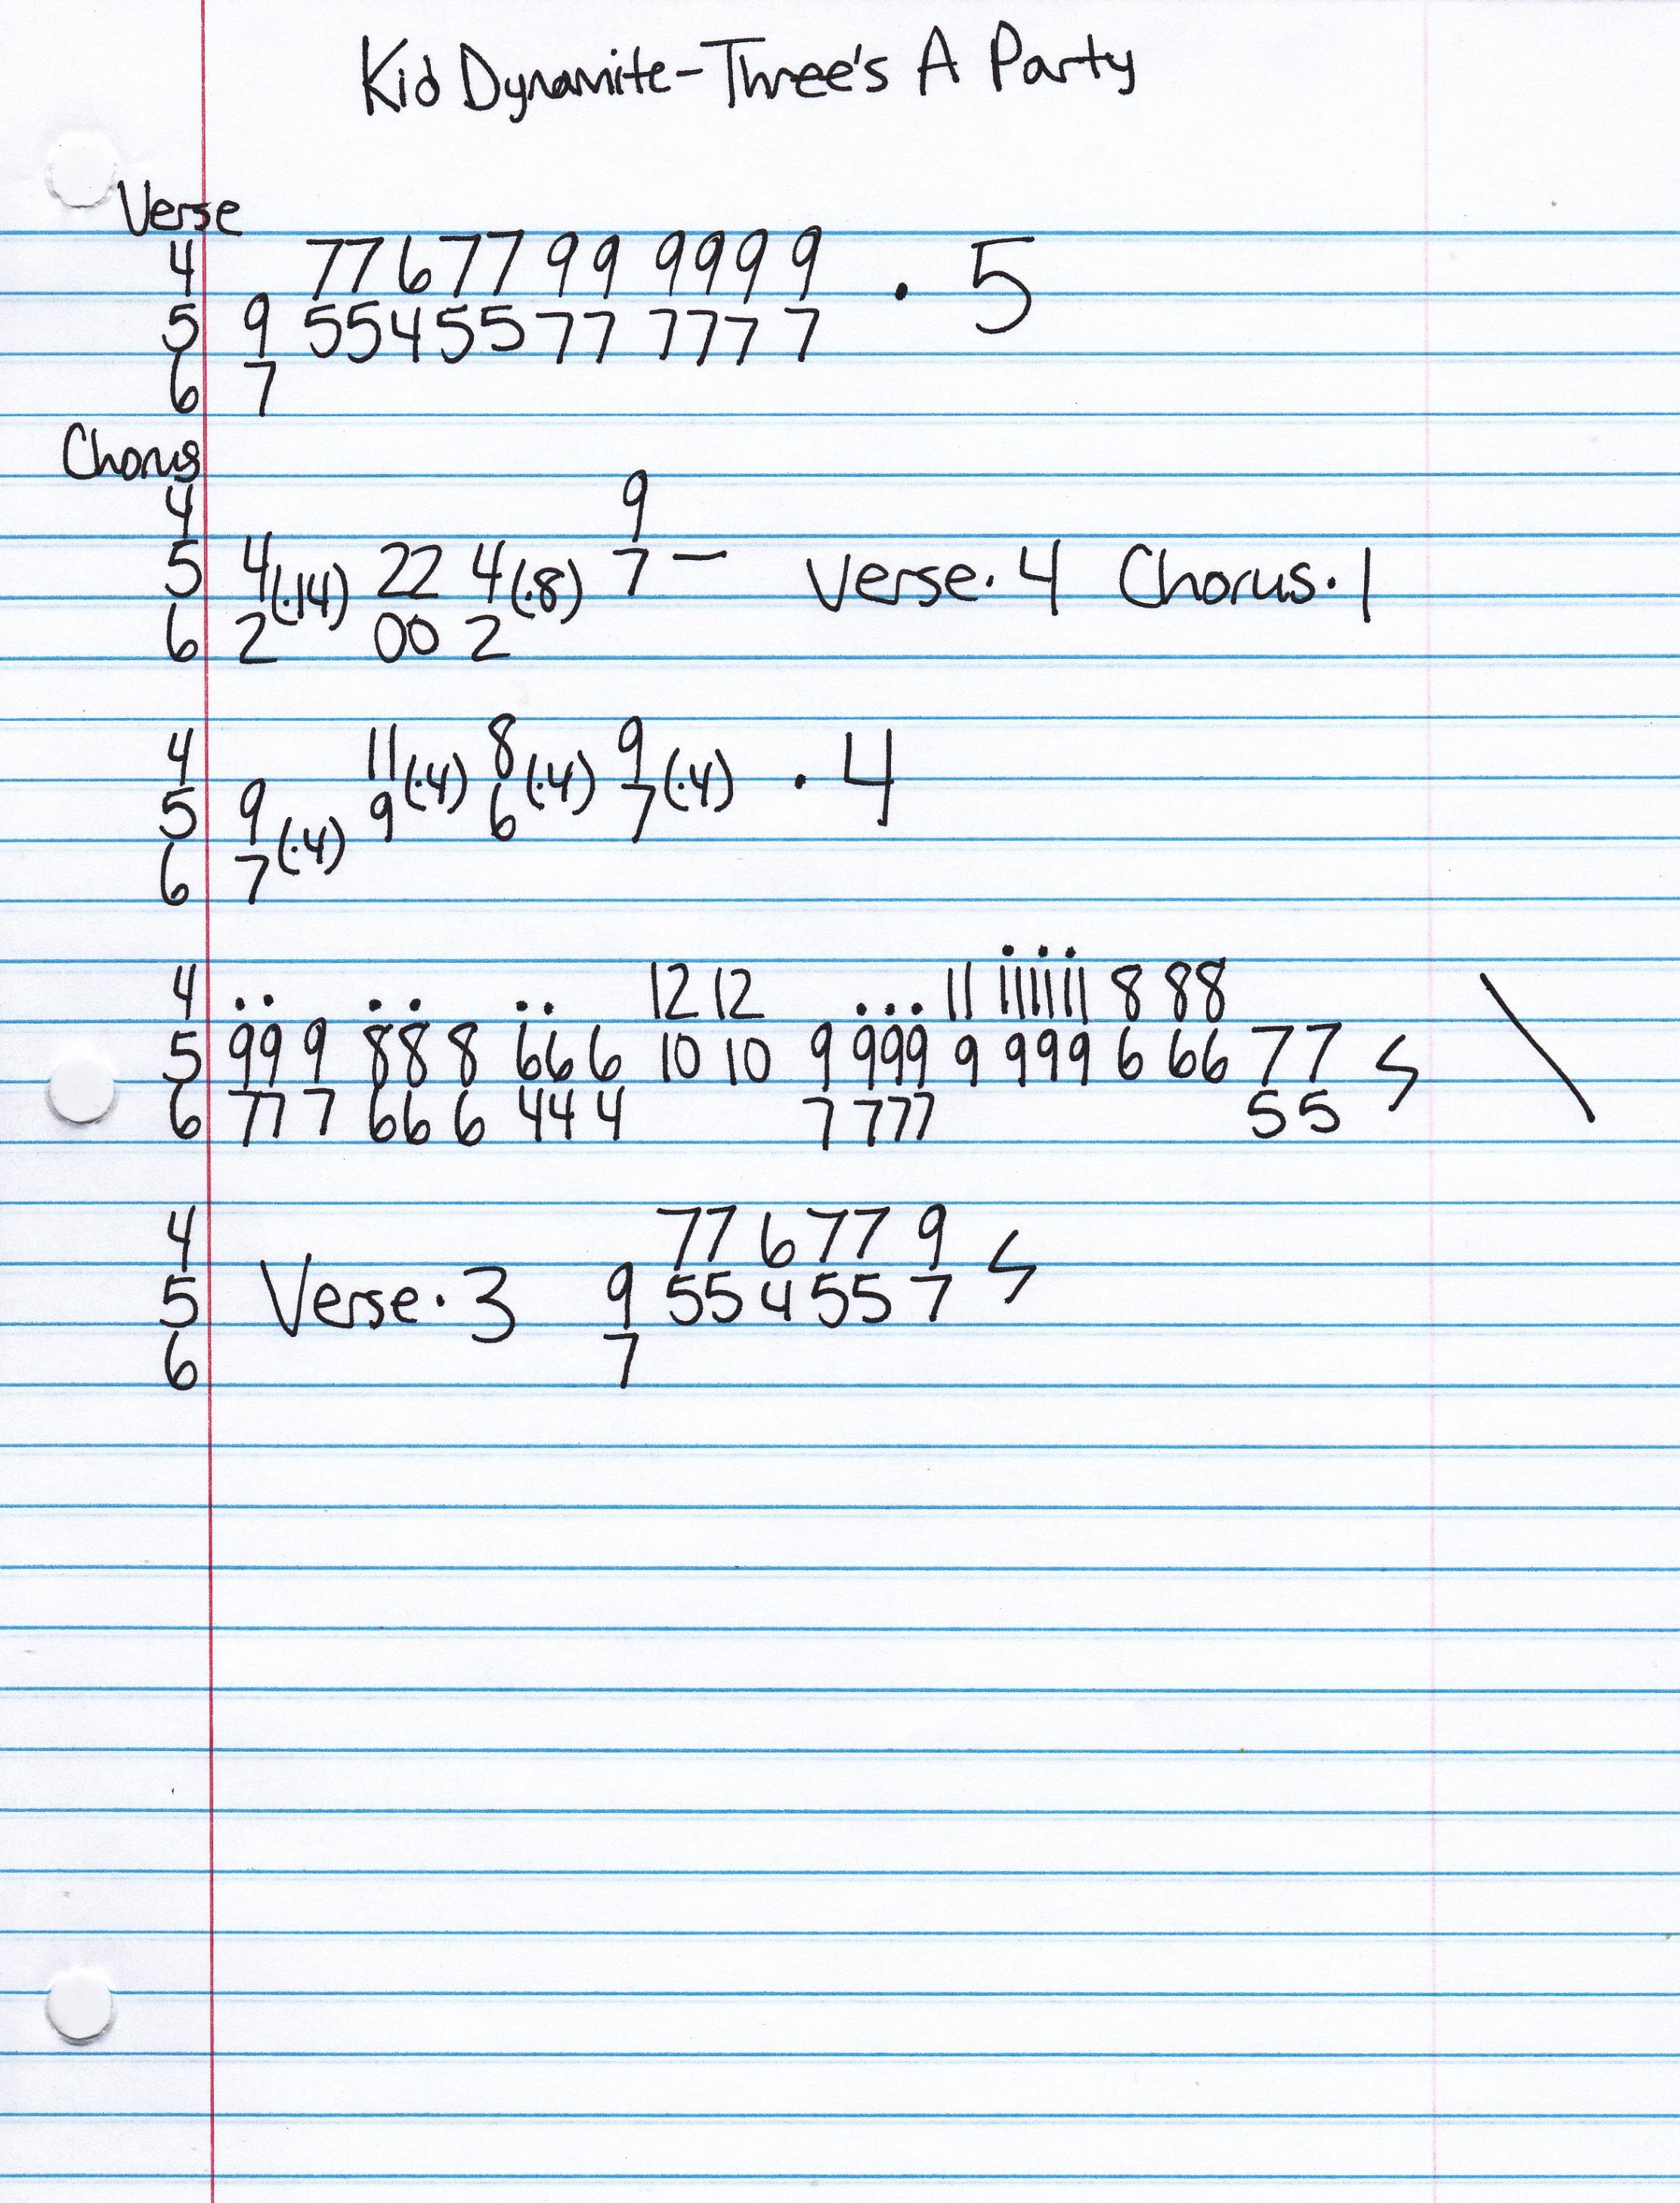 Kid Dynamite - Three's A Party
Verse
4 77 6 77 99 9999 9 · 5
5 9 55 4 55 77 7777 7
6 7
Chorus
4 9
5 4(·14) 22 4(·8) 7 — Verse · 4 Chorus · 1
6 2 00 2
4 11(·4) 8(·4) 9(·4) · 4
5 9 9 6 7
6 7(·4)
4 ·· ·· ·· 12 12 ··· 11 111111 8 88 \
5 99 9 88 8 66 6 10 10 9 999 9 999 6 66 77 ϟ
6 77 7 66 6 44 4 7 777 55
4 77 6 77 9 ϟ
5 Verse · 3 9 55 4 55 7
6 7